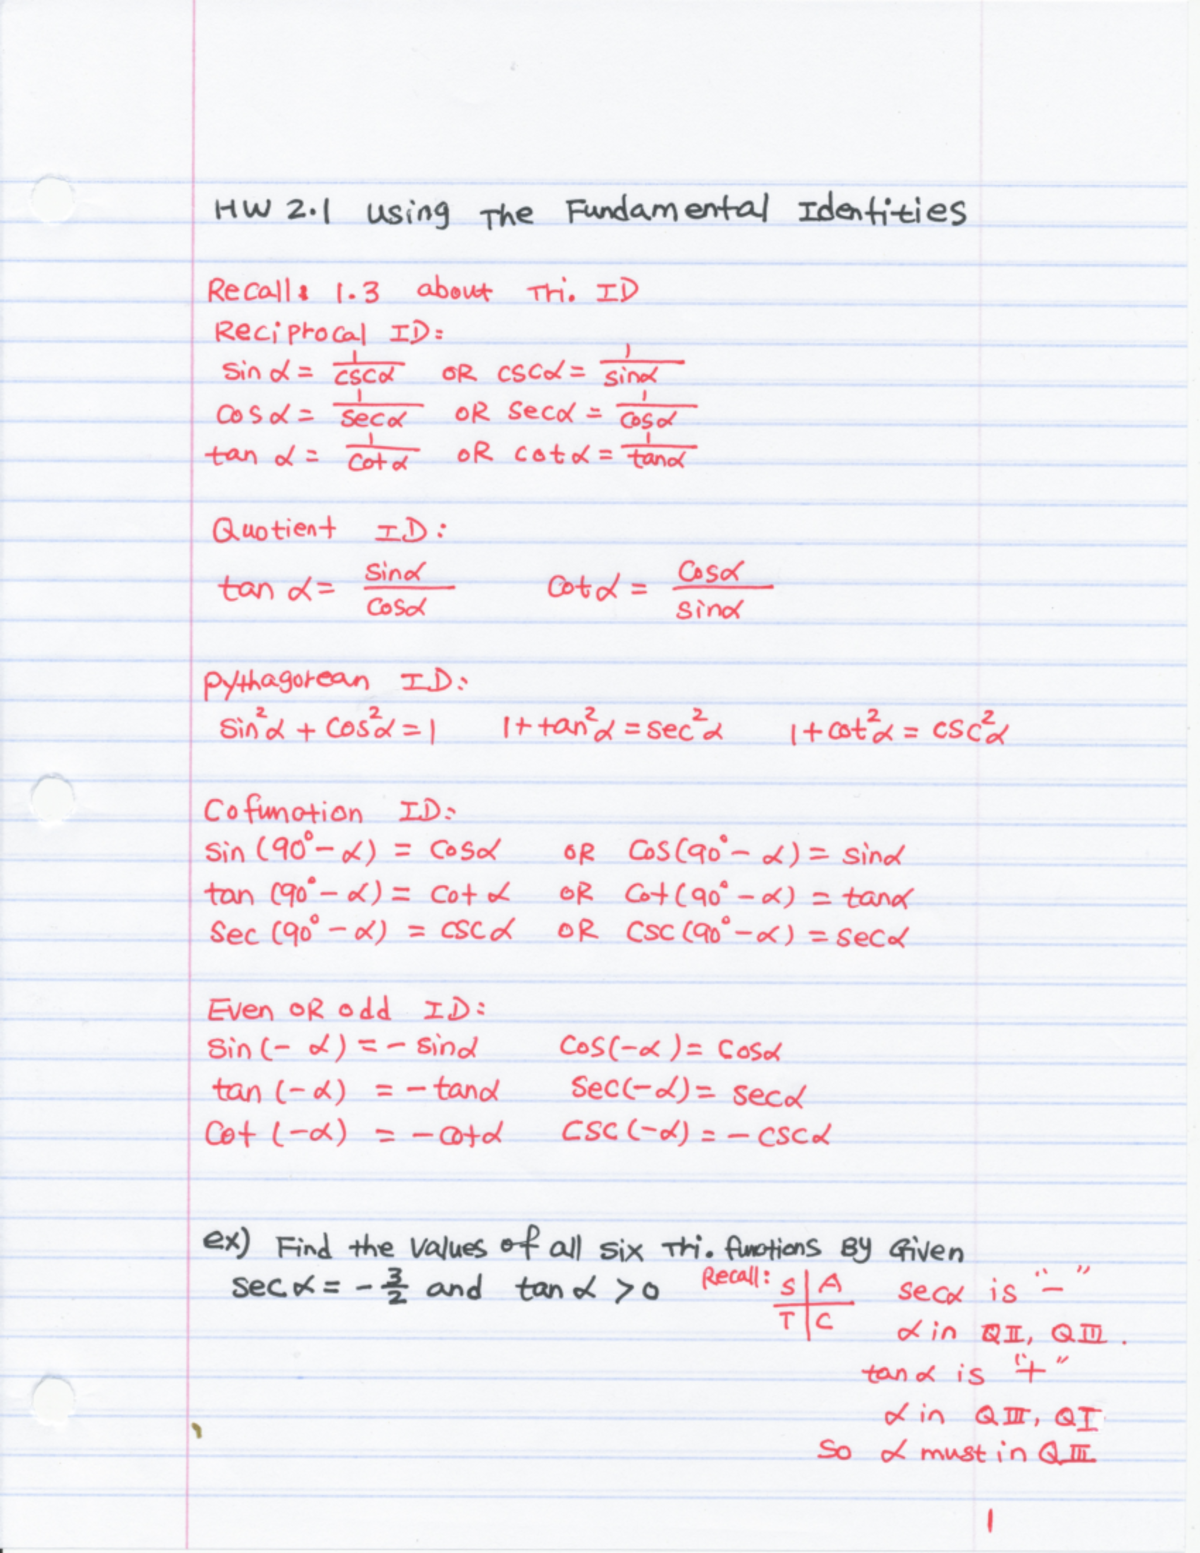 HW 2.1 Using The Fundamental Identities
Recall: 1.3 about Tri. ID
Reciprocal ID:
sin α = 1/cscα OR cscα = 1/sinα
cos α = 1/secα OR secα = 1/cosα
tan α = 1/cotα OR cotα = 1/tanα
Quotient ID:
tan α = sinα/cosα cotα = cosα/sinα
Pythagorean ID:
sin²α + cos²α = 1 1 + tan²α = sec²α 1 + cot²α = csc²α
Cofunction ID:
sin (90° - α) = cosα OR cos(90° - α) = sinα
tan (90° - α) = cot α OR cot(90° - α) = tanα
sec (90° - α) = csc α OR csc (90° - α) = secα
Even OR odd ID:
sin (- α) = - sinα cos(-α) = cosα
tan (-α) = - tanα sec(-α) = secα
cot (-α) = - cotα csc (-α) = - cscα
ex) Find the values of all six Tri. functions By Given
sec α = - 3/2 and tan α > 0 Recall: S A secα is "-"
T C α in QII, QIII.
tan α is "+"
α in QIII, QI
So α must in QIII
1